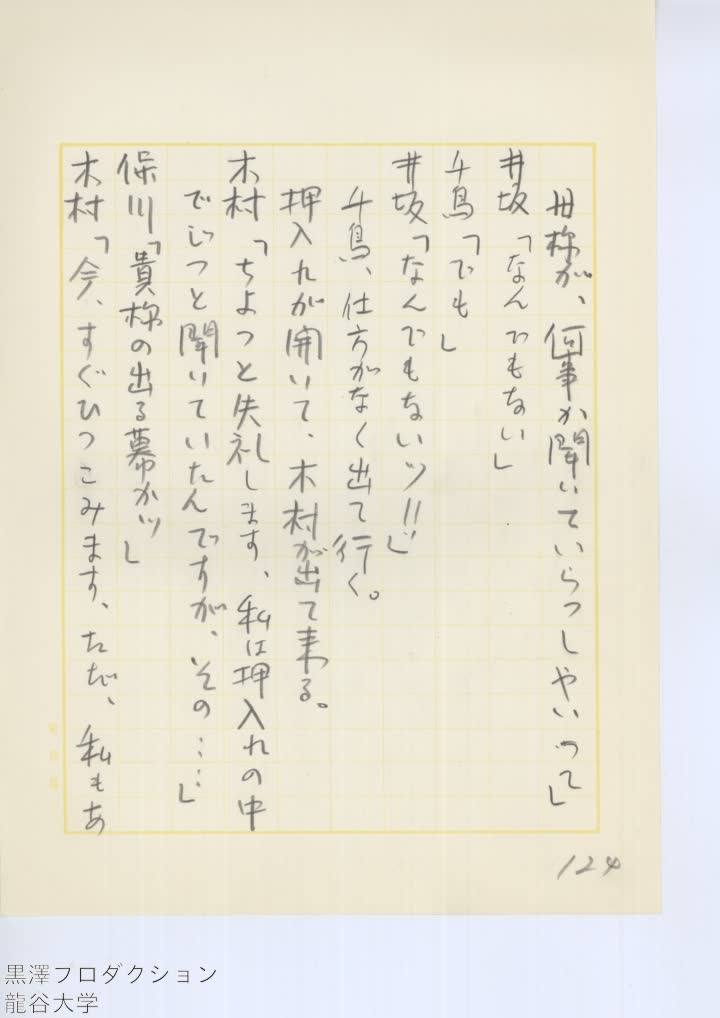 母様が、何事か聞いていらつしやいつて」
井坂「なんでもない」
千鳥「でも」
井坂「なんでもないツ!!」
千鳥、仕方がなく出て行く。
押入れが開いて、木村が出て来る。
木村「ちよつと失礼します、私は押入れの中
でじつと聞いていたんですが、その……」
保川「貴様の出る幕かツ」
木村「今、すぐひつこみます、ただ、私もあ
124
黒澤プロダクション
龍谷大学